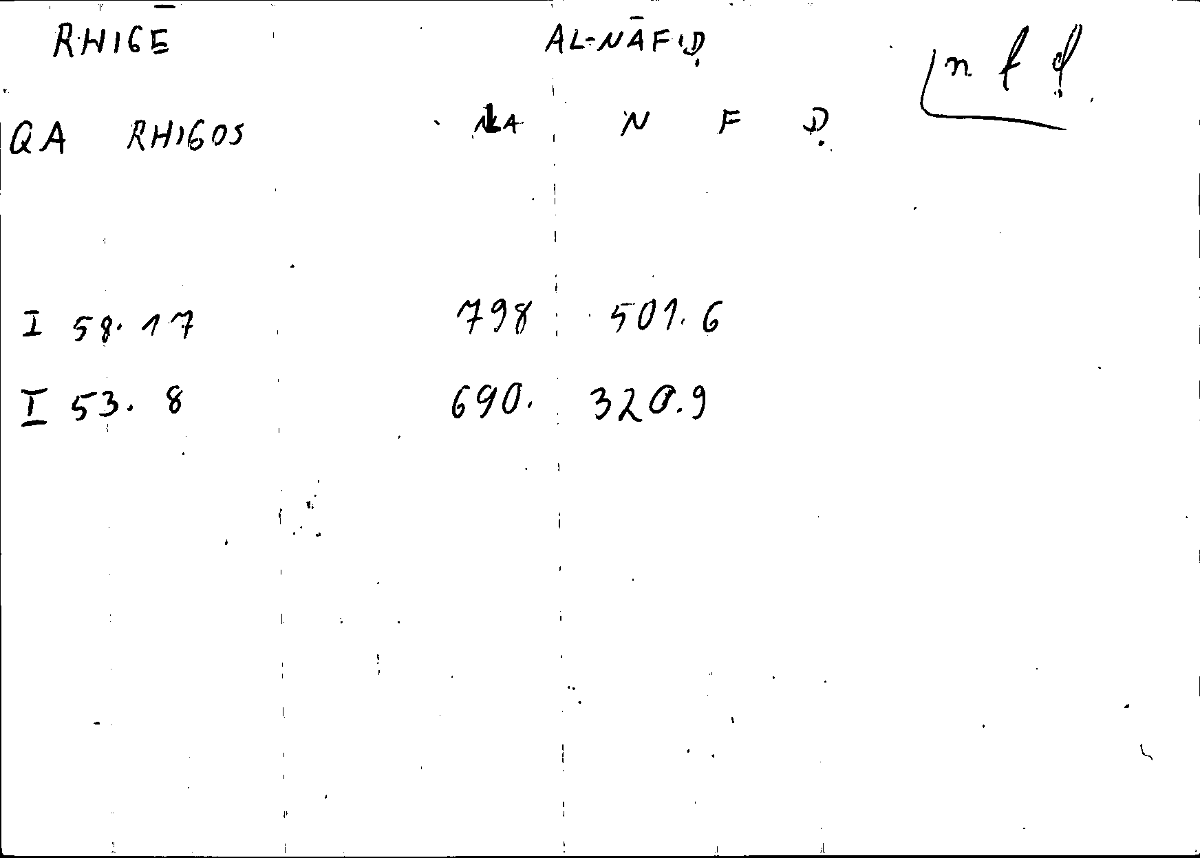 RHIGĒ AL-NĀFIḌ n f ḍ
QA RHIGOS NA N F Ḍ
I 58.17 798 501.6
I 53.8 690. 320.9